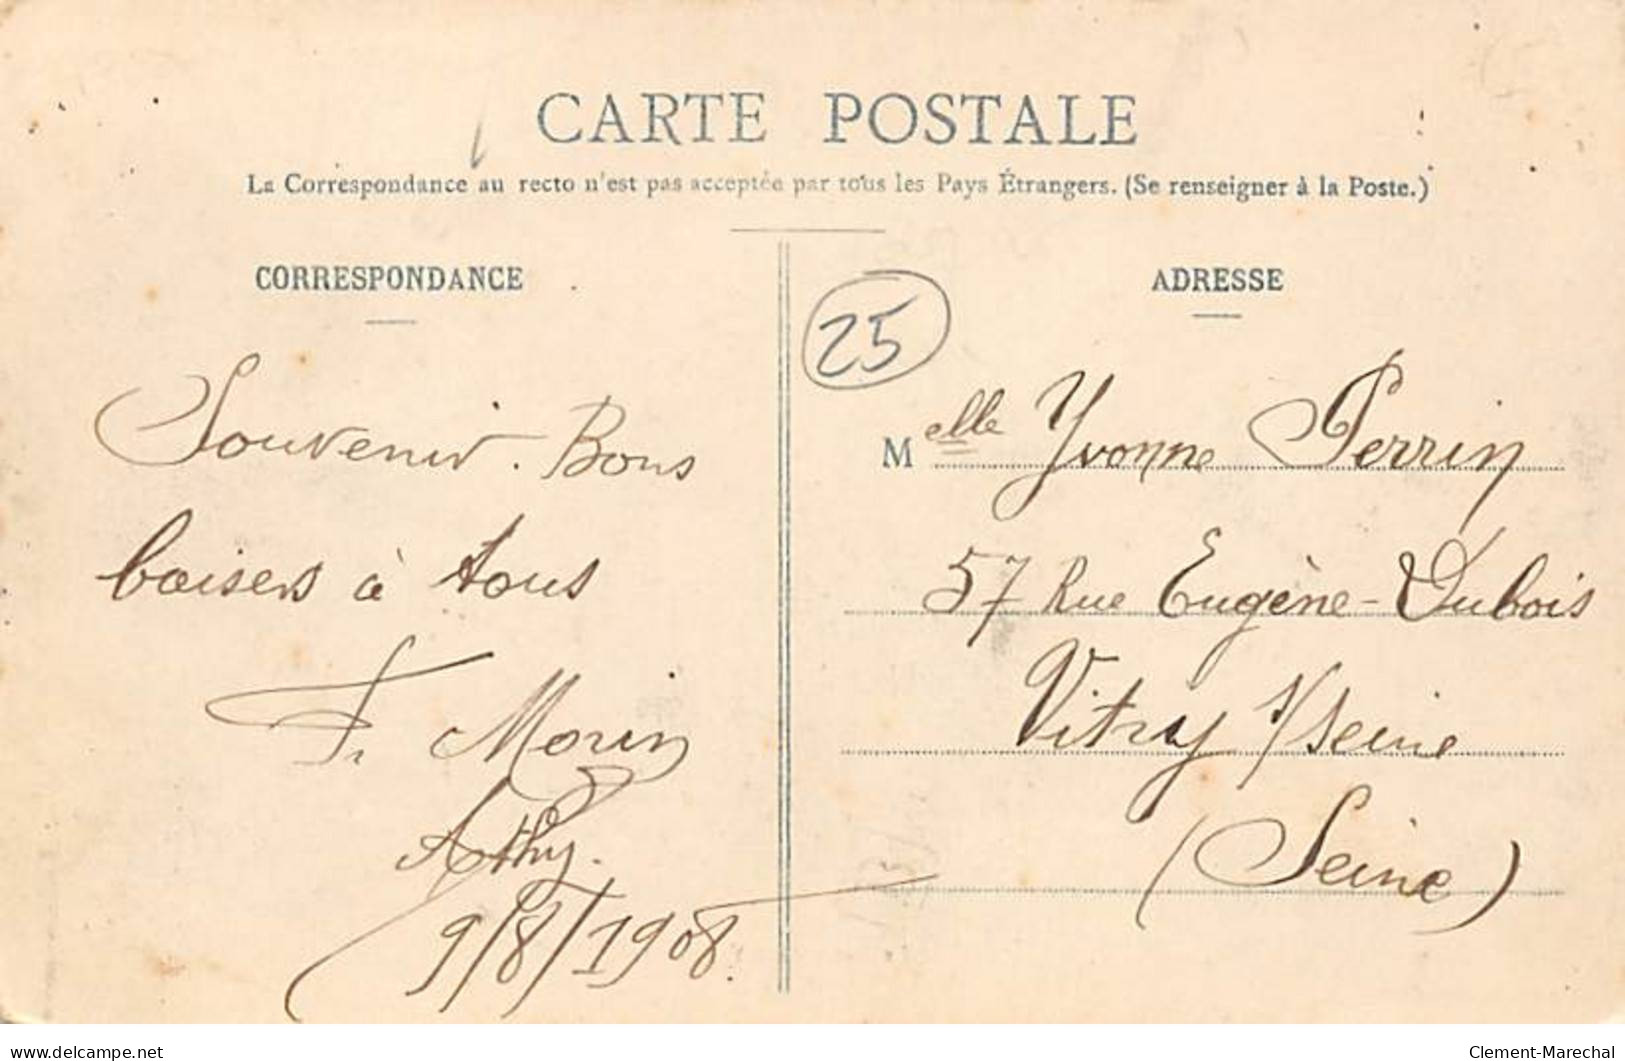 CARTE POSTALE
La Correspondance au recto n'est pas acceptée par tous les Pays Étrangers. (Se renseigner à la Poste.)
CORRESPONDANCE
Souvenir. Bons
baisers à tous
F. Morin
Athy.
9/8/1908.
ADRESSE
25
Melle Yvonne Perrin
57 Rue Eugène-Dubois
Vitry s/Seine
(Seine)
delcampe.net
Clement-Marechal